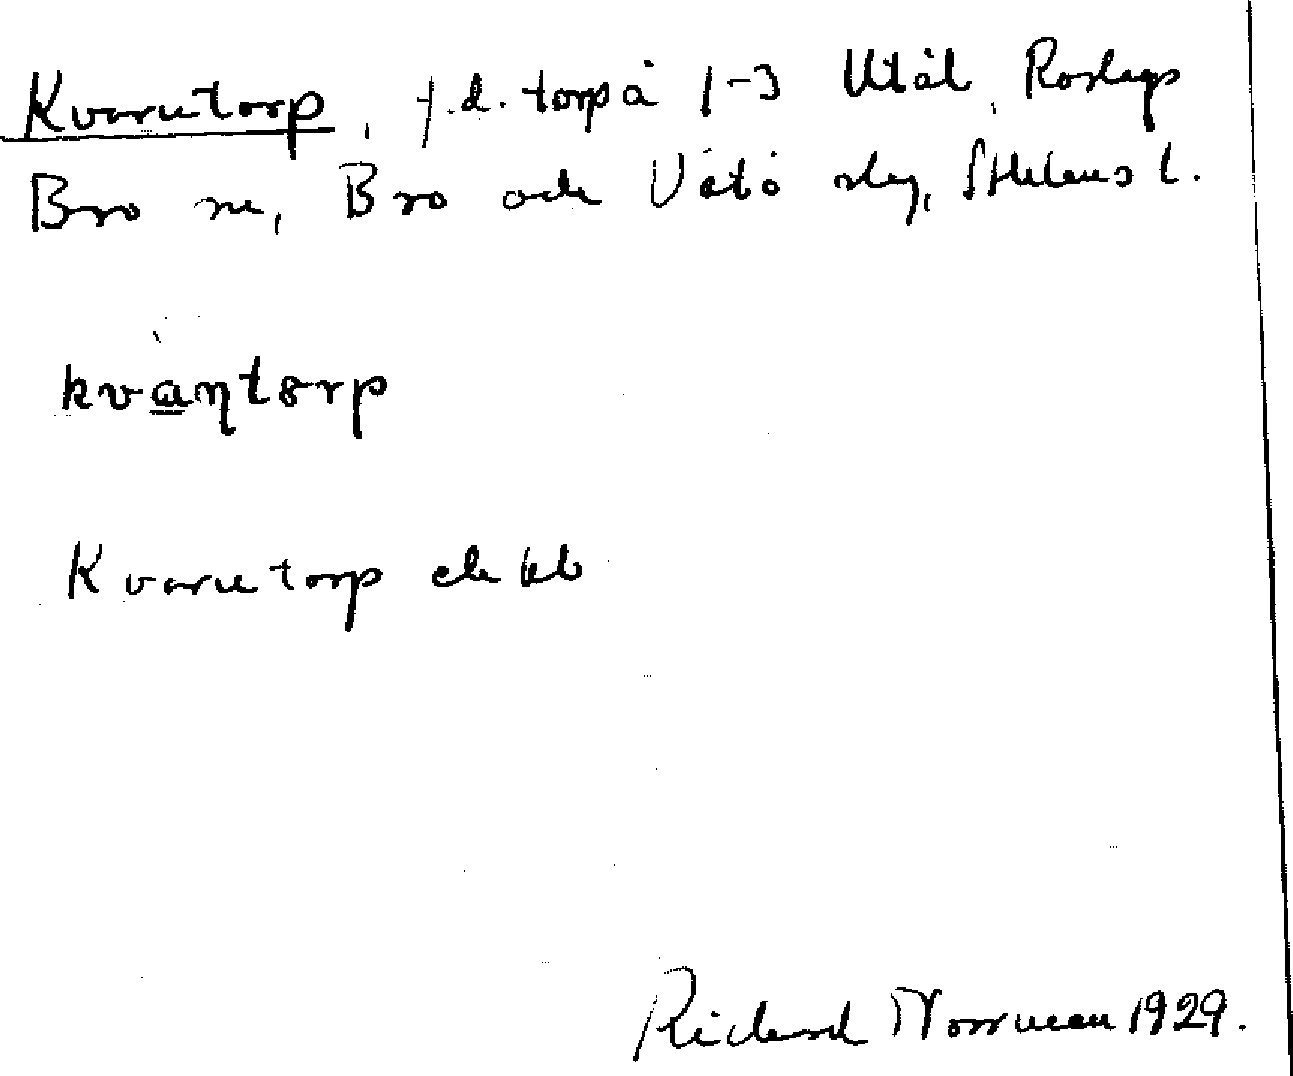 Kvarntorp, f.d. torp å 1-3 Utål, Roslags
Bro sn, Bro och Vätö slg, Sthlms l.
kvàṇtɷrp
Kvarntorp ek bl
Richard Norrman 1929.